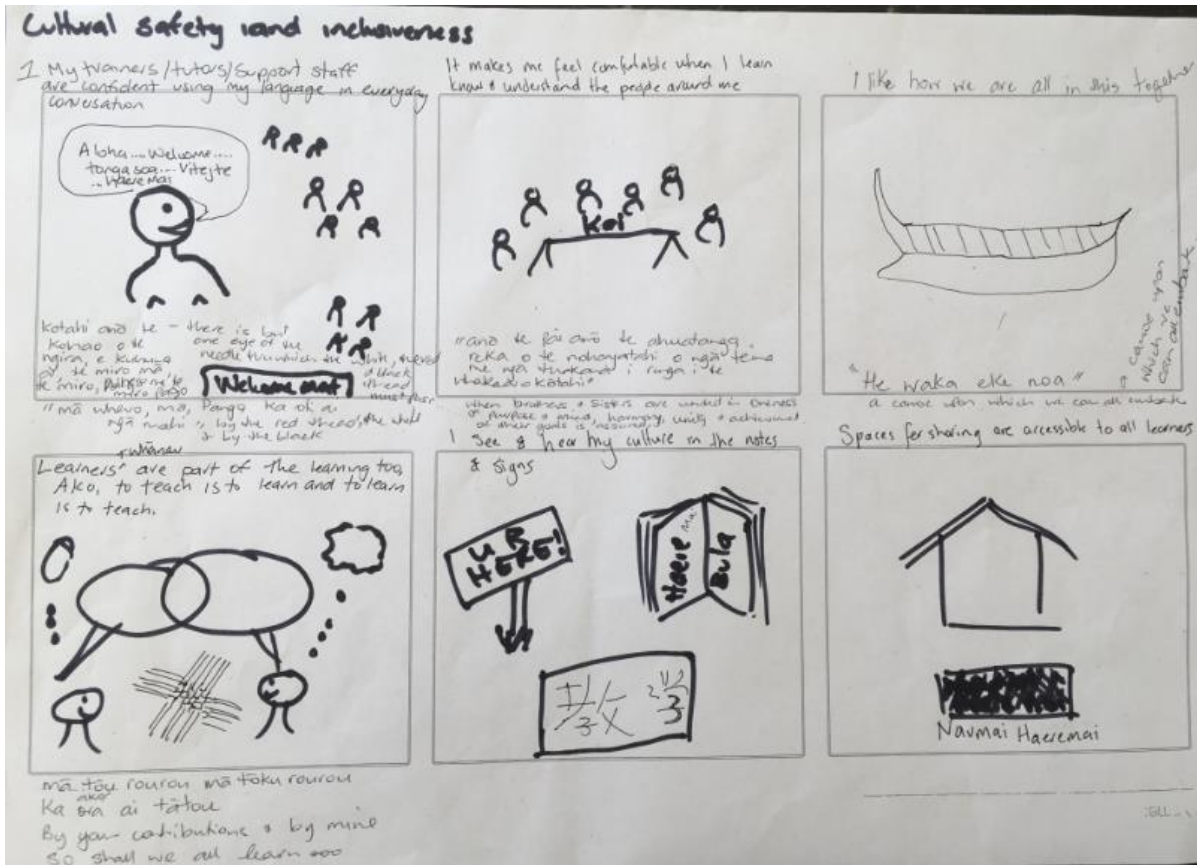 Cultural safety and inclusiveness
1 My trainers/tutors/support staff
are confident using my language in everyday
conversation
Aloha.... Welcome....
Vitejte
Haeremai
kotahi anō te - there is but
kohao o te one eye of the
ngira, e kuhuna needle thru which the white, thread
ai te miro mā, black
te miro, thread
must pass
Welcome mat
"mā whero, mā, Pango ka oti ai
ngā mahi" by the red thread, the white
& by the black
It makes me feel comfortable when I learn
know & understand the people around me
Kai
"anō te pai anō te
reka o te nohoatahi o ngā
me ngā i runga i te
kotahi"
when brothers & sisters are united in oneness
of purpose & mind, harmony, unity & achievement
of their goals is assured
I like how we are all in this together
"He waka eke noa"
a canoe upon which we can all embark
a canoe upon
which we
can all embark
whānau
Learners' are part of the learning too,
Ako, to teach is to learn and to learn
is to teach.
mā tōu rourou mā tōku rourou
Ka ako ai tātou
By your contributions & by mine
So shall we all learn
I see & hear my culture in the notes
& signs
U R
HERE!
Haere Mai
Bula
Spaces for sharing are accessible to all learners
Naumai Haeremai